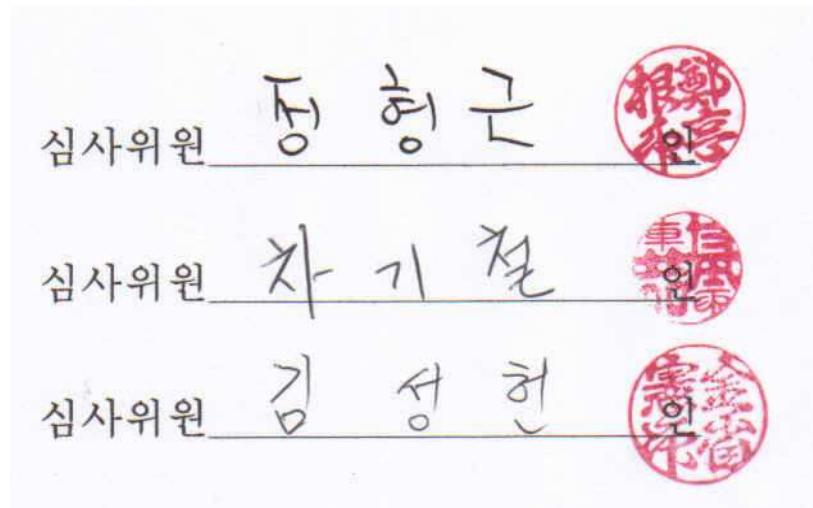 심사위원 정 형 근 인
심사위원 차 기 철 인
심사위원 김 성 헌 인